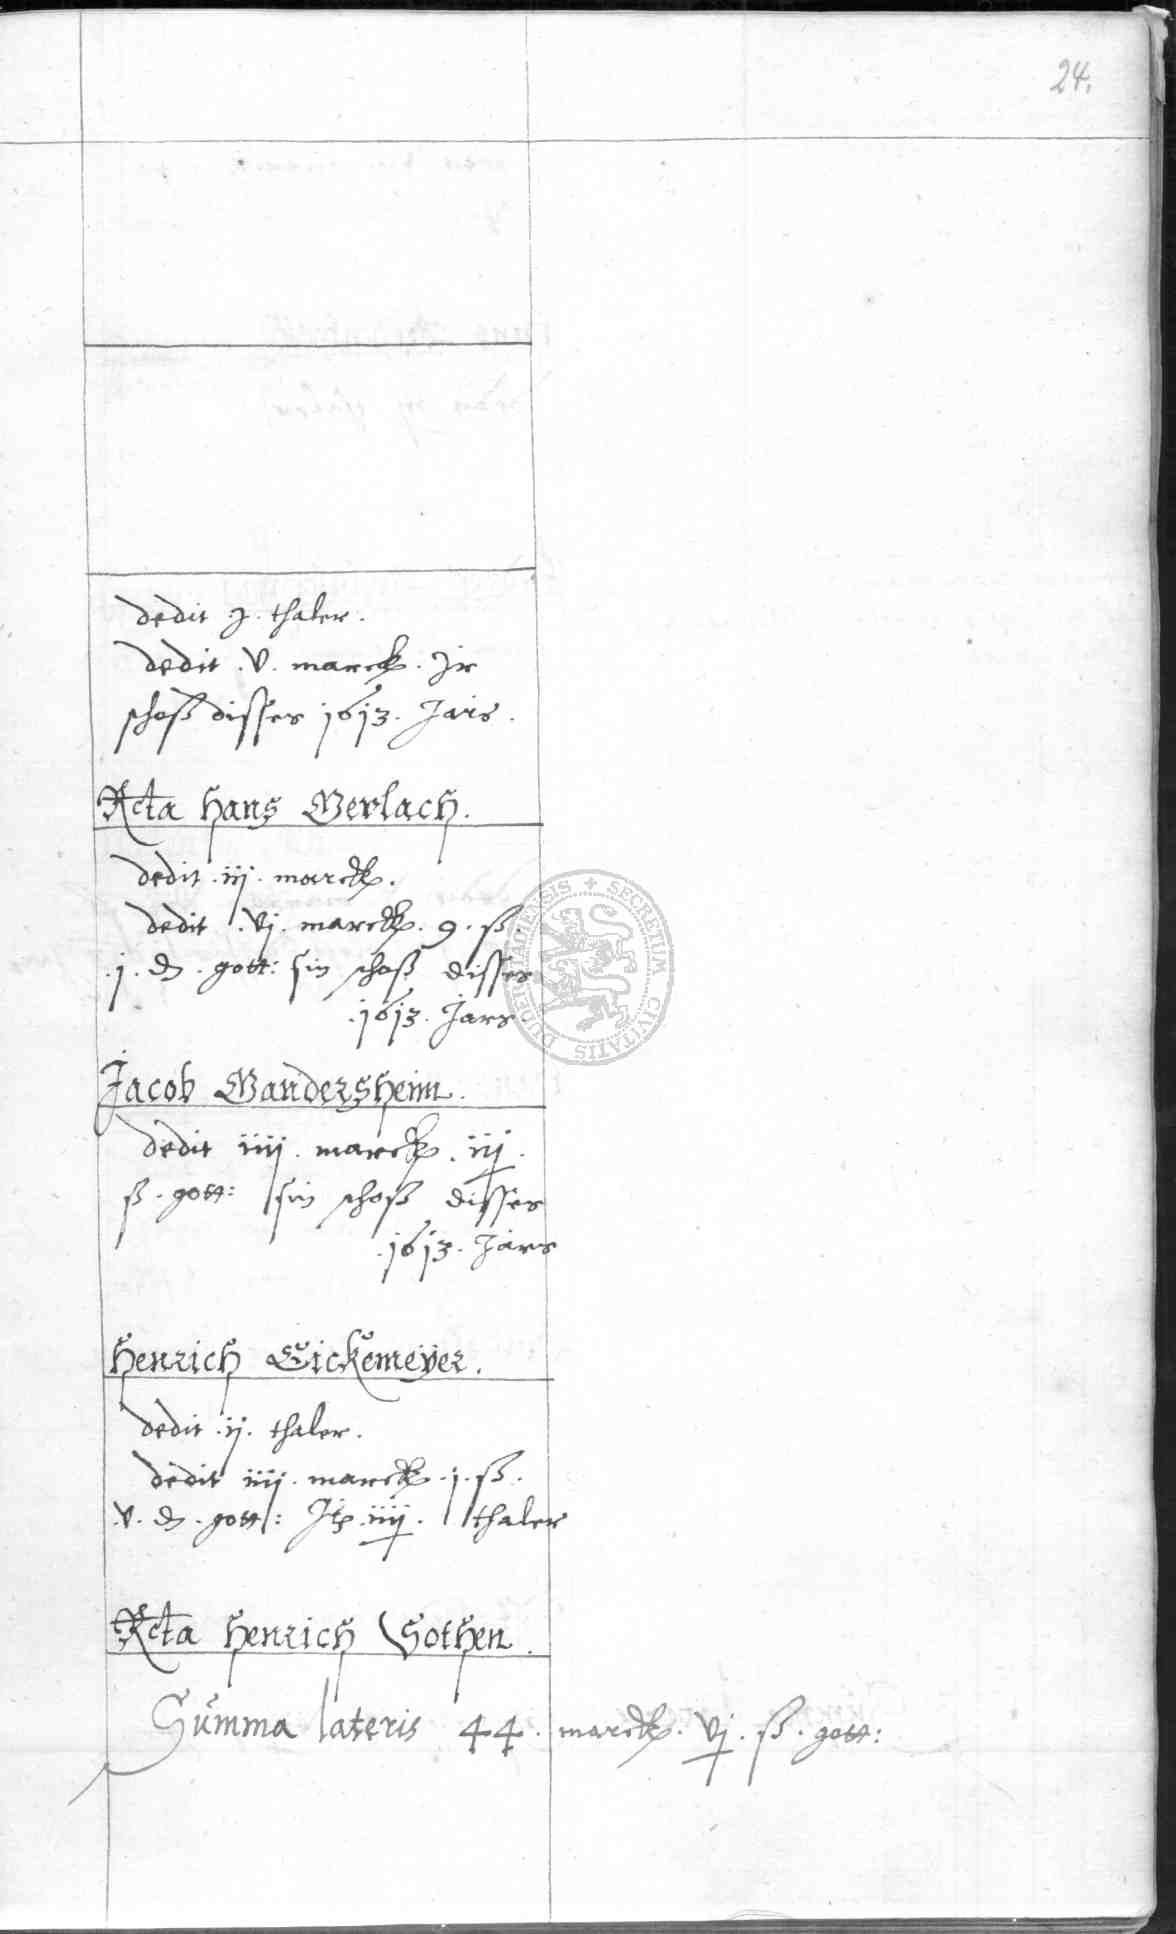 24.
dedit .j. thaler.
dedit .v. marck. Jr
schoß disses 1613. Jars.
Rcta Hans Gerlach.
dedit .iij. marck.
dedit .vj. marck. 9. ß.
.j. d. gott: sin schoß disses
.1613. Jars
Jacob Gandersheim.
dedit iiij. marck. iij.
ß. gott: sin schoß disses
.1613. Jars
Henrich Eickemeyer.
dedit .ij. thaler.
dedit iiij. marck. .j. ß.
.v. d. gott: It. iiij. thaler
Rcta Henrich Gothen.
Summa lateris 44. marck. vj. ß. gott:
SECRETUM CIVITATIS DUDERSTADENSIS